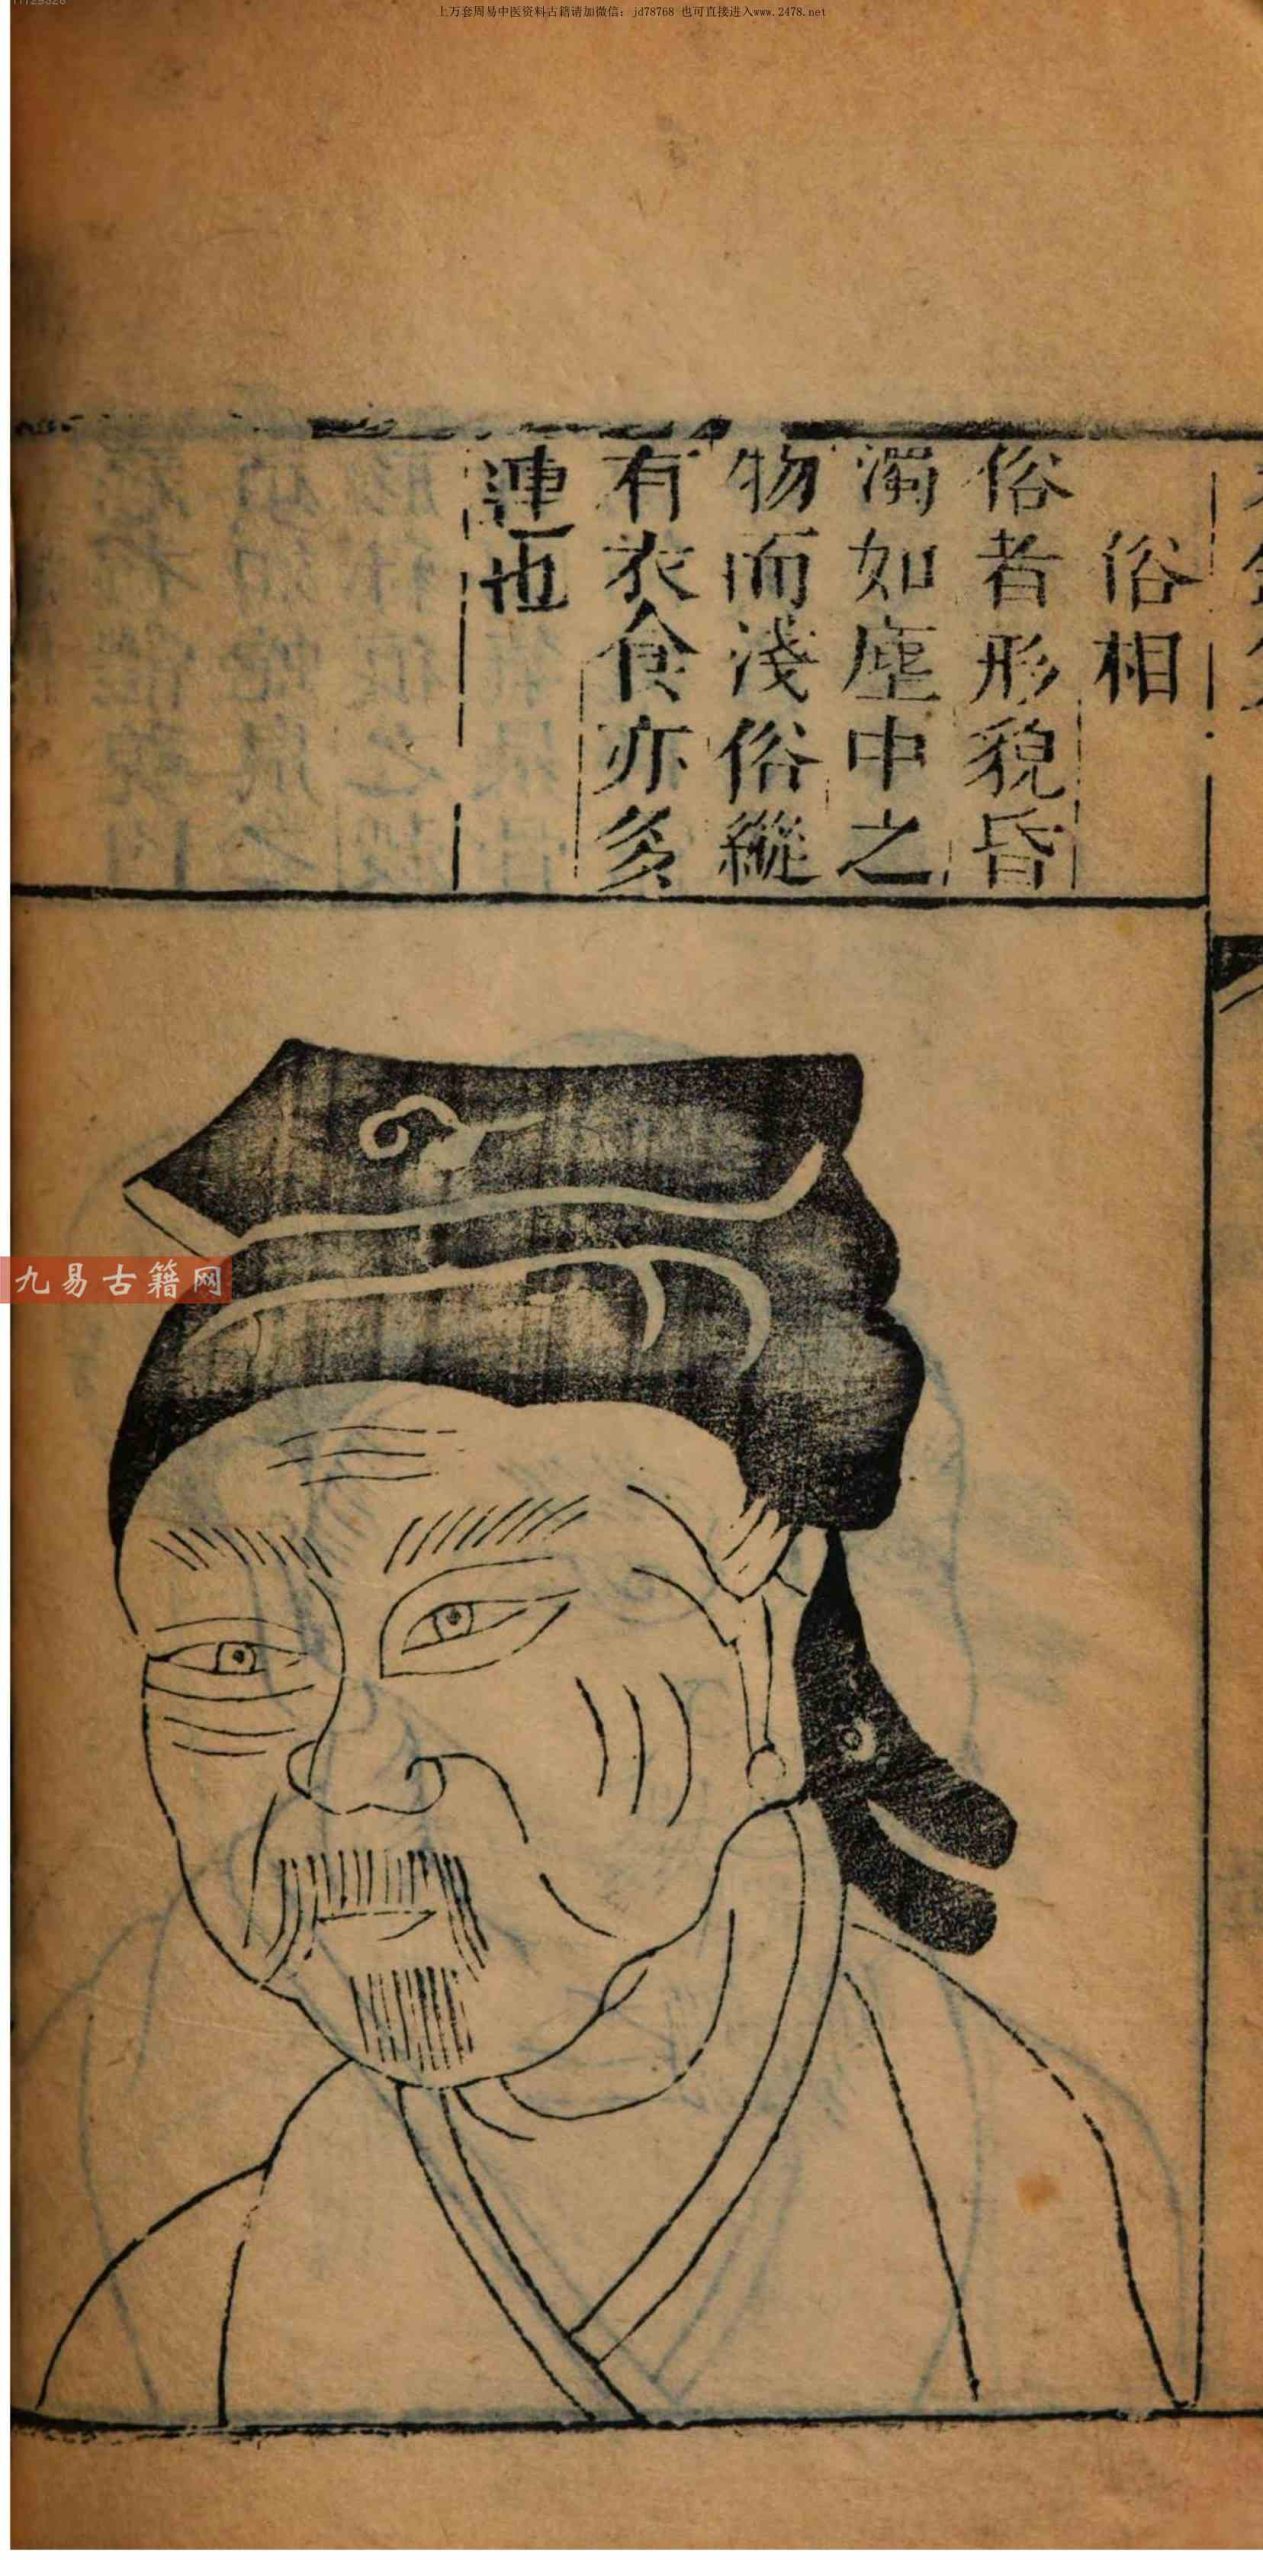 11729326
上万套周易中医资料古籍请加微信：jd78768 也可直接进入www.2478.net
俗相
俗者形貌昏
濁如塵中之
物而淺俗縱
有衣食亦多
迍也
九易古籍网